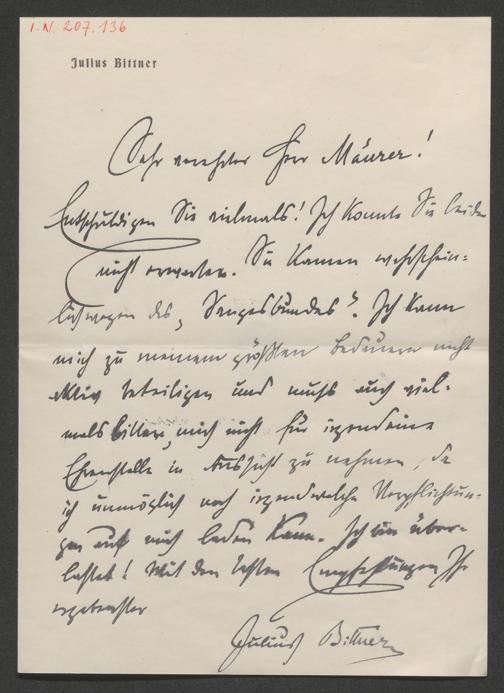 I.N. 207.136
Julius Bittner
Sehr verehrter Herr Maurer!
Entschuldigen Sie vielmals! Ich konnte Sie leider
nicht erwarten. Sie kamen wahrschein-
lich wegen des „Sangesbundes". Ich kann
mich zu meinem größten Bedauern nicht
aktiv beteiligen und muß auch viel-
mals bitten, mich nicht für irgendeine
Ehrenstelle in Aussicht zu nehmen, da
ich unmöglich noch irgendwelche Verpflichtun-
gen auf mich laden kann. Ich bin über-
lastet! Mit den besten Empfehlungen Ihr
ergebenster
Julius Bittner